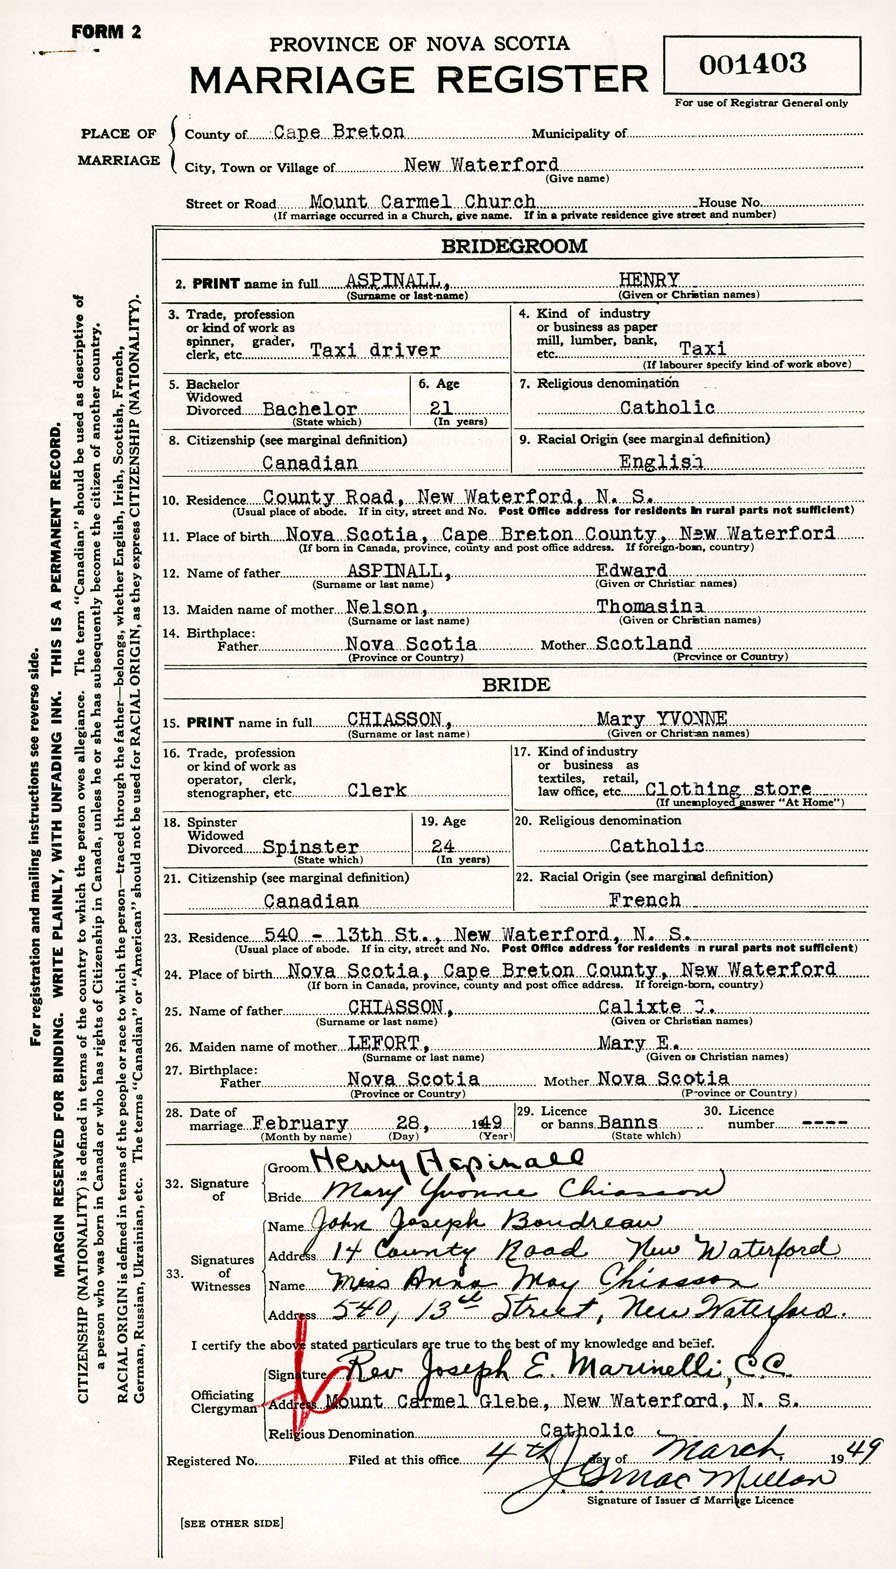 FORM 2
PROVINCE OF NOVA SCOTIA
MARRIAGE REGISTER
001403
For use of Registrar General only
PLACE OF MARRIAGE
County of Cape Breton Municipality of
City, Town or Village of New Waterford
(Give name)
Street or Road Mount Carmel Church House No.
(If marriage occurred in a Church, give name. If in a private residence give street and number)
For registration and mailing instructions see reverse side.
MARGIN RESERVED FOR BINDING. WRITE PLAINLY, WITH UNFADING INK. THIS IS A PERMANENT RECORD.
CITIZENSHIP (NATIONALITY) is defined in terms of the country to which the person owes allegiance. The term "Canadian" should be used as descriptive of
a person who was born in Canada or who has rights of Citizenship in Canada, unless he or she has subsequently become the citizen of another country.
RACIAL ORIGIN is defined in terms of the people or race to which the person—traced through the father—belongs, whether English, Irish, Scottish, French,
German, Russian, Ukrainian, etc. The terms "Canadian" or "American" should not be used for RACIAL ORIGIN, as they express CITIZENSHIP (NATIONALITY).
BRIDEGROOM
2. PRINT name in full ASPINALL, HENRY
(Surname or last name) (Given or Christian names)
3. Trade, profession
or kind of work as
spinner, grader,
clerk, etc. Taxi driver
4. Kind of industry
or business as paper
mill, lumber, bank,
etc. Taxi
(If labourer specify kind of work above)
5. Bachelor
Widowed
Divorced Bachelor
(State which)
6. Age
21
(In years)
7. Religious denomination
Catholic
8. Citizenship (see marginal definition)
Canadian
9. Racial Origin (see marginal definition)
English
10. Residence County Road, New Waterford, N. S.
(Usual place of abode. If in city, street and No. Post Office address for residents in rural parts not sufficient)
11. Place of birth Nova Scotia, Cape Breton County, New Waterford
(If born in Canada, province, county and post office address. If foreign-born, country)
12. Name of father ASPINALL, Edward
(Surname or last name) (Given or Christian names)
13. Maiden name of mother Nelson, Thomasina
(Surname or last name) (Given or Christian names)
14. Birthplace:
Father Nova Scotia Mother Scotland
(Province or Country) (Province or Country)
BRIDE
15. PRINT name in full CHIASSON, Mary YVONNE
(Surname or last name) (Given or Christian names)
16. Trade, profession
or kind of work as
operator, clerk,
stenographer, etc. Clerk
17. Kind of industry
or business as
textiles, retail,
law office, etc. Clothing store
(If unemployed answer "At Home")
18. Spinster
Widowed
Divorced Spinster
(State which)
19. Age
24
(In years)
20. Religious denomination
Catholic
21. Citizenship (see marginal definition)
Canadian
22. Racial Origin (see marginal definition)
French
23. Residence 540 - 13th St., New Waterford, N. S.
(Usual place of abode. If in city, street and No. Post Office address for residents in rural parts not sufficient)
24. Place of birth Nova Scotia, Cape Breton County, New Waterford
(If born in Canada, province, county and post office address. If foreign-born, country)
25. Name of father CHIASSON, Calixte C.
(Surname or last name) (Given or Christian names)
26. Maiden name of mother LEFORT, Mary E.
(Surname or last name) (Given or Christian names)
27. Birthplace:
Father Nova Scotia Mother Nova Scotia
(Province or Country) (Province or Country)
28. Date of
marriage February 28, 1949
(Month by name) (Day) (Year)
29. Licence
or banns Banns
(State which)
30. Licence
number ----
32. Signature of
Groom Henry Aspinall
Bride Mary Yvonne Chiasson
33. Signatures of Witnesses
Name John Joseph Boudreau
Address 14 County Road New Waterford
Name Miss Anna May Chiasson
Address 540, 13th Street, New Waterford.
I certify the above stated particulars are true to the best of my knowledge and belief.
Officiating Clergyman
Signature Rev Joseph E. Marinelli, C.C.
Address Mount Carmel Glebe, New Waterford, N. S.
Religious Denomination Catholic
Registered No. Filed at this office 4th day of March 1949
J S MacMillan
Signature of Issuer of Marriage Licence
[SEE OTHER SIDE]